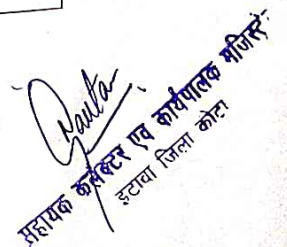 सहायक कलेक्टर एवं कार्यपालक मजिस्ट्रे
इटावा जिला कोटा